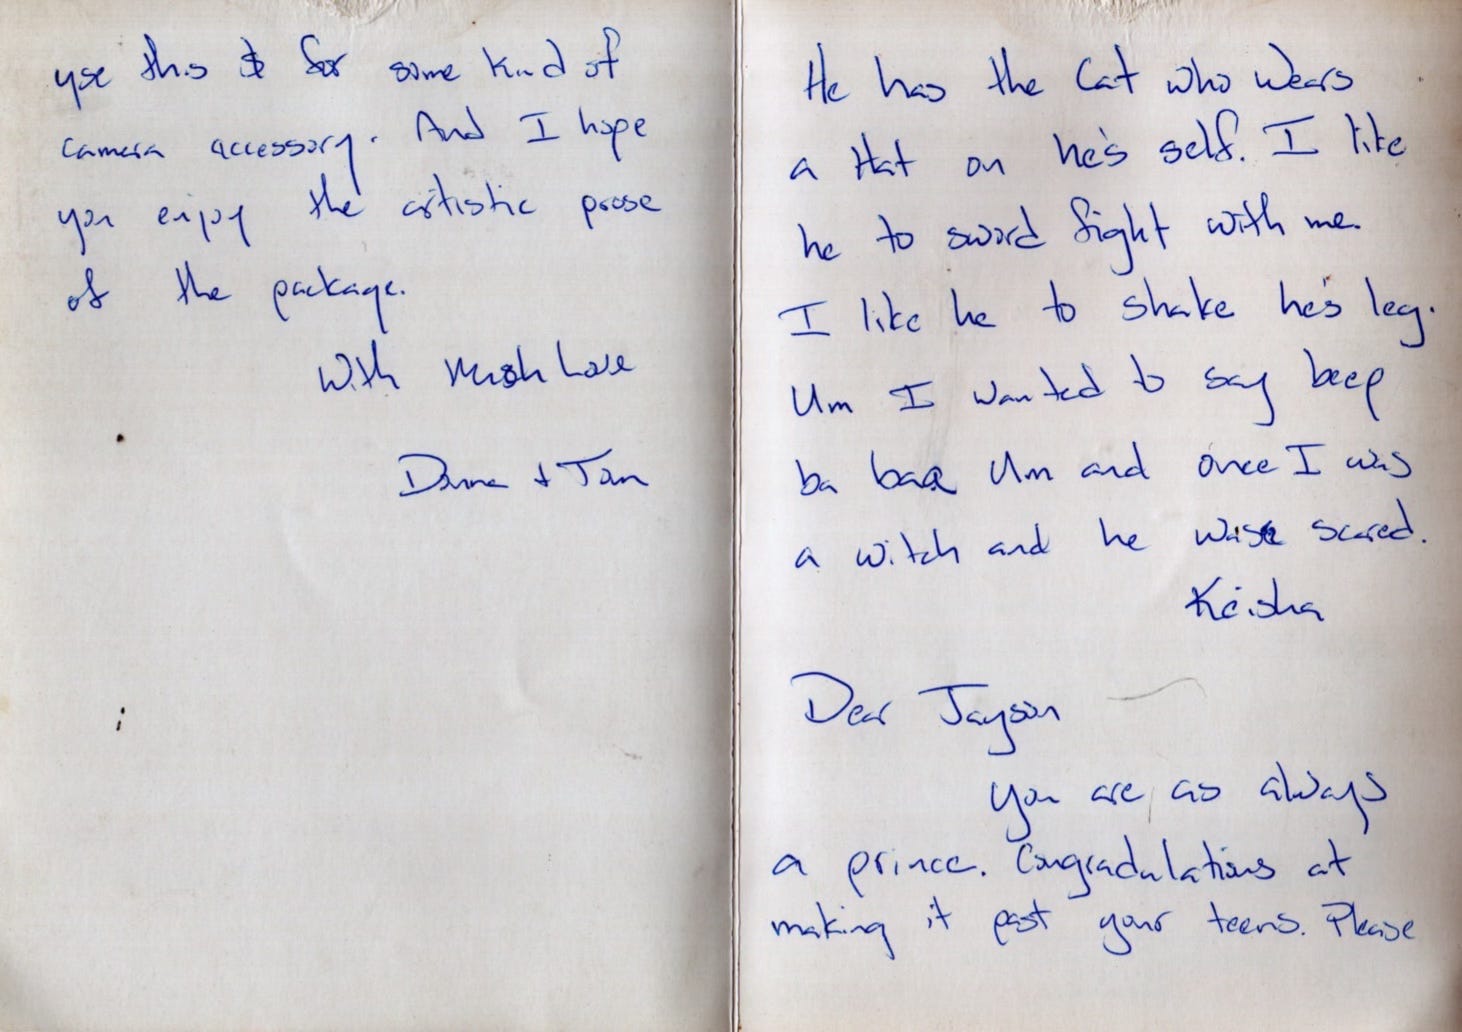 use this $ for some kind of
camera accessory. And I hope
you enjoy the artistic prose
of the package.
With Much Love
+ Tom
He has the Cat who wears
a Hat on he's self. I like
he to sword fight with me.
I like he to shake he's leg.
Um I wanted to say beep
ba baa Um and once I was
a witch and he was scared.
Keisha
Dear Jayson
you are as always
a prince. Congradulations at
making it past your teens. Please